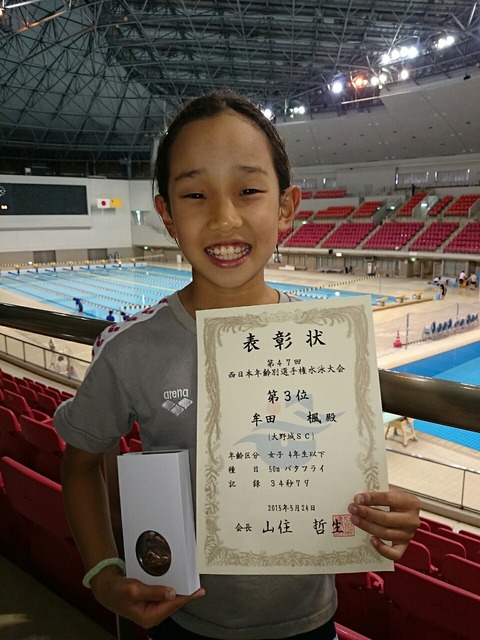 表彰状
第47回
西日本年齢別選手権水泳大会
第3位
牟田 楓殿
(大野城SC)
年齢区分 女子 4年生以下
種 目 50m バタフライ
記 録 34秒79
2015年5月24日
会長 山住 哲生
arena